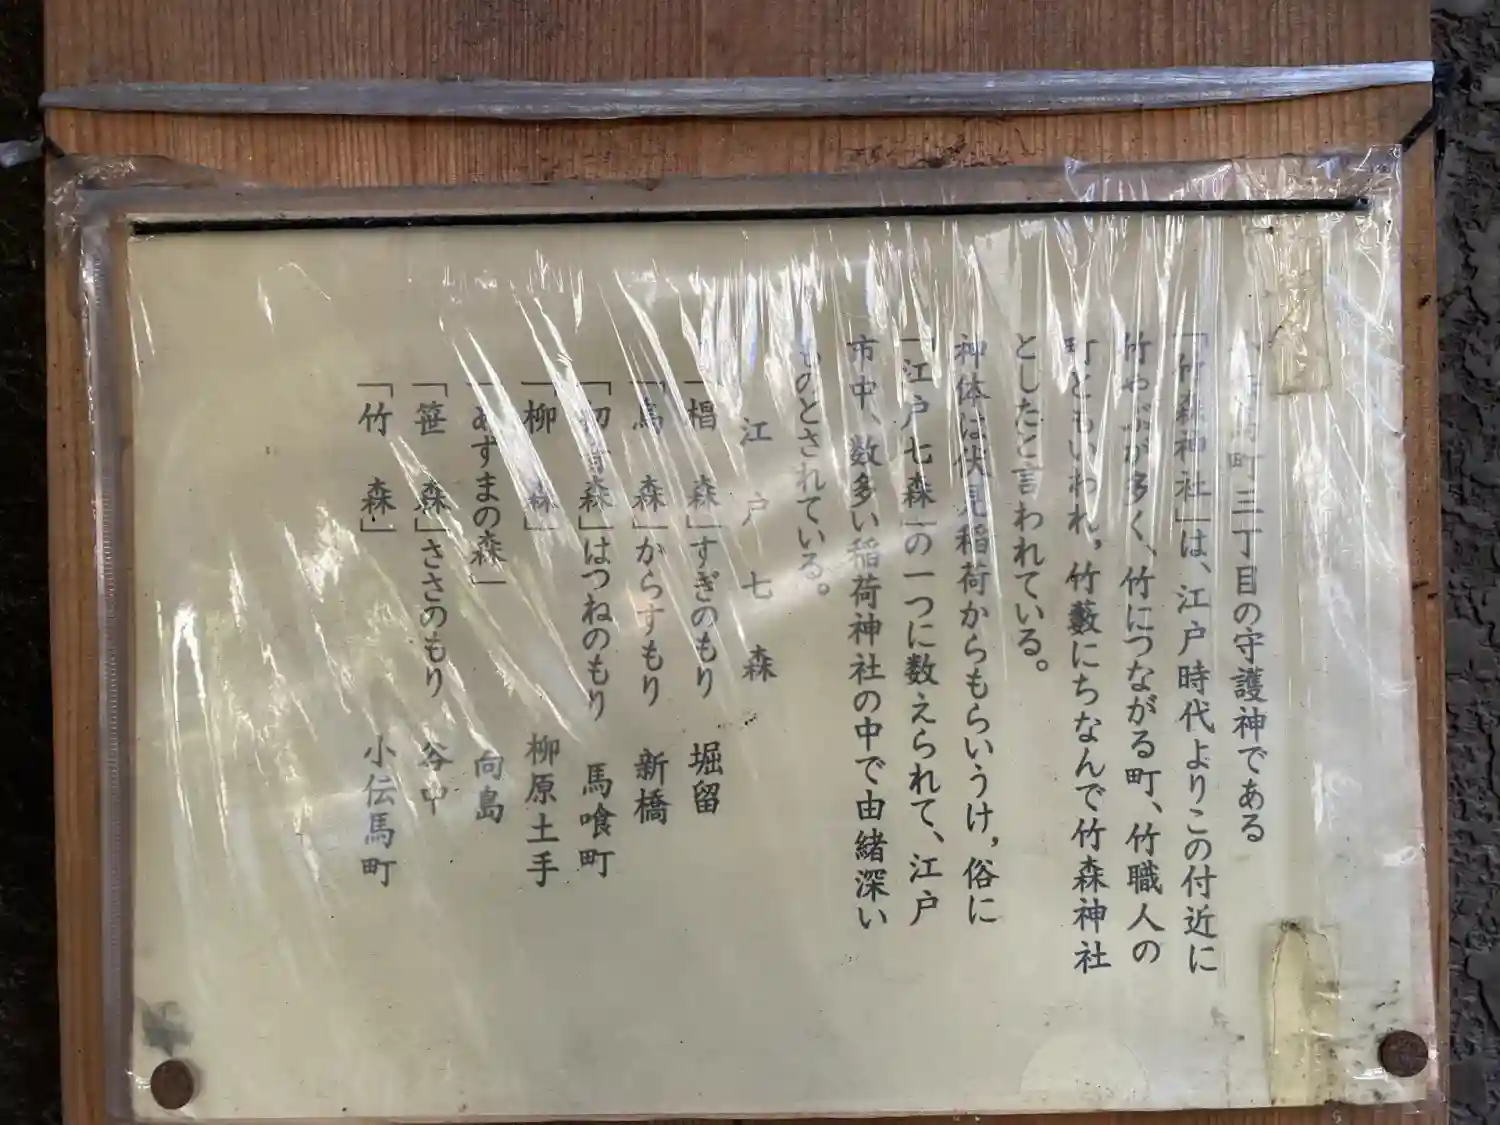 町三丁目の守護神である
「竹森神社」は、江戸時代よりこの付近に
竹やぶが多く、竹につながる町、竹職人の
町ともいわれ，竹藪にちなんで竹森神社
としたと言われている。
神体は伏見稲荷からもらいうけ，俗に
「江戸七森」の一つに数えられて、江戸
市中、数多い稲荷神社の中で由緒深い
ものとされている。
江戸七森
「椙森」すぎのもり 堀留
「烏森」からすもり 新橋
「初音森」はつねのもり 馬喰町
「柳森」 柳原土手
「あずまの森」 向島
「笹森」ささのもり 谷中
「竹森」 小伝馬町